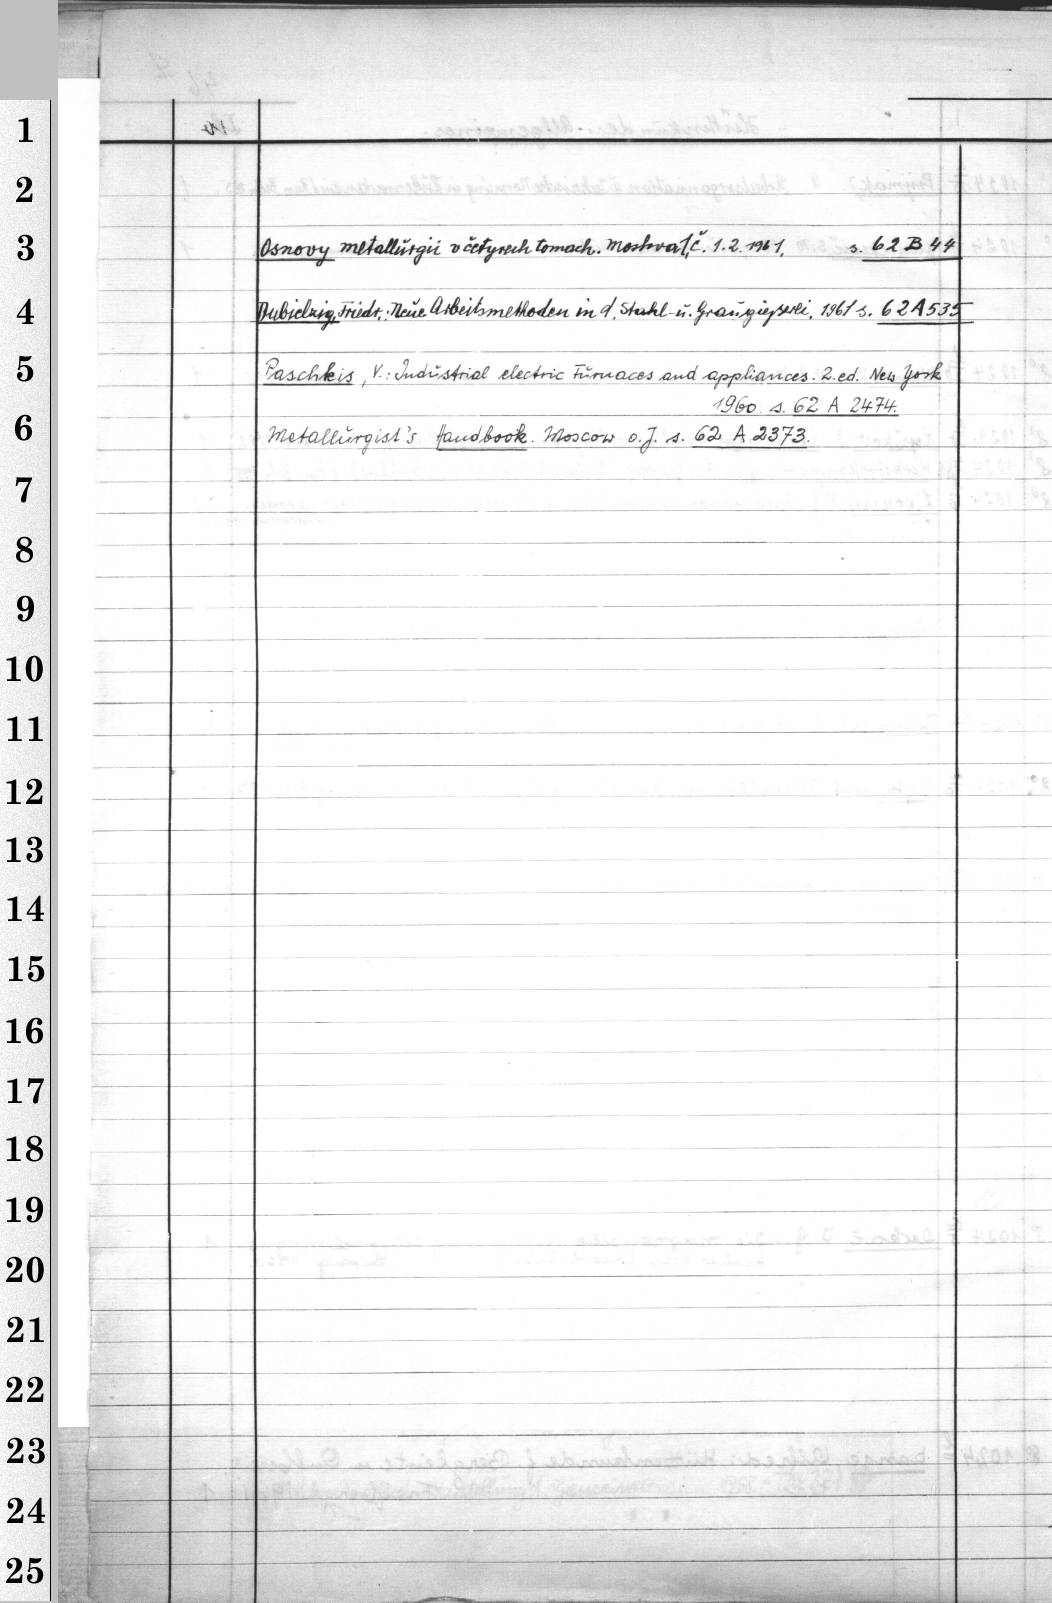 1
2
3
4
5
6
7
8
9
10
11
12
13
14
15
16
17
18
19
20
21
22
23
24
25
Osnovy metallurgii v četyrech tomach. Moskva č. 1. 2. 1961. s. 62 B 44
Friedr.: Neue Arbeitsmethoden in d. Stahl- u. Graugießerei. 1961 s. 62 A 535
Paschkis, V.: Industrial electric Furnaces and appliances. 2. ed. New York
1960. s. 62 A 2474.
Metallurgist's Handbook. Moscow o. J. s. 62 A 2373.